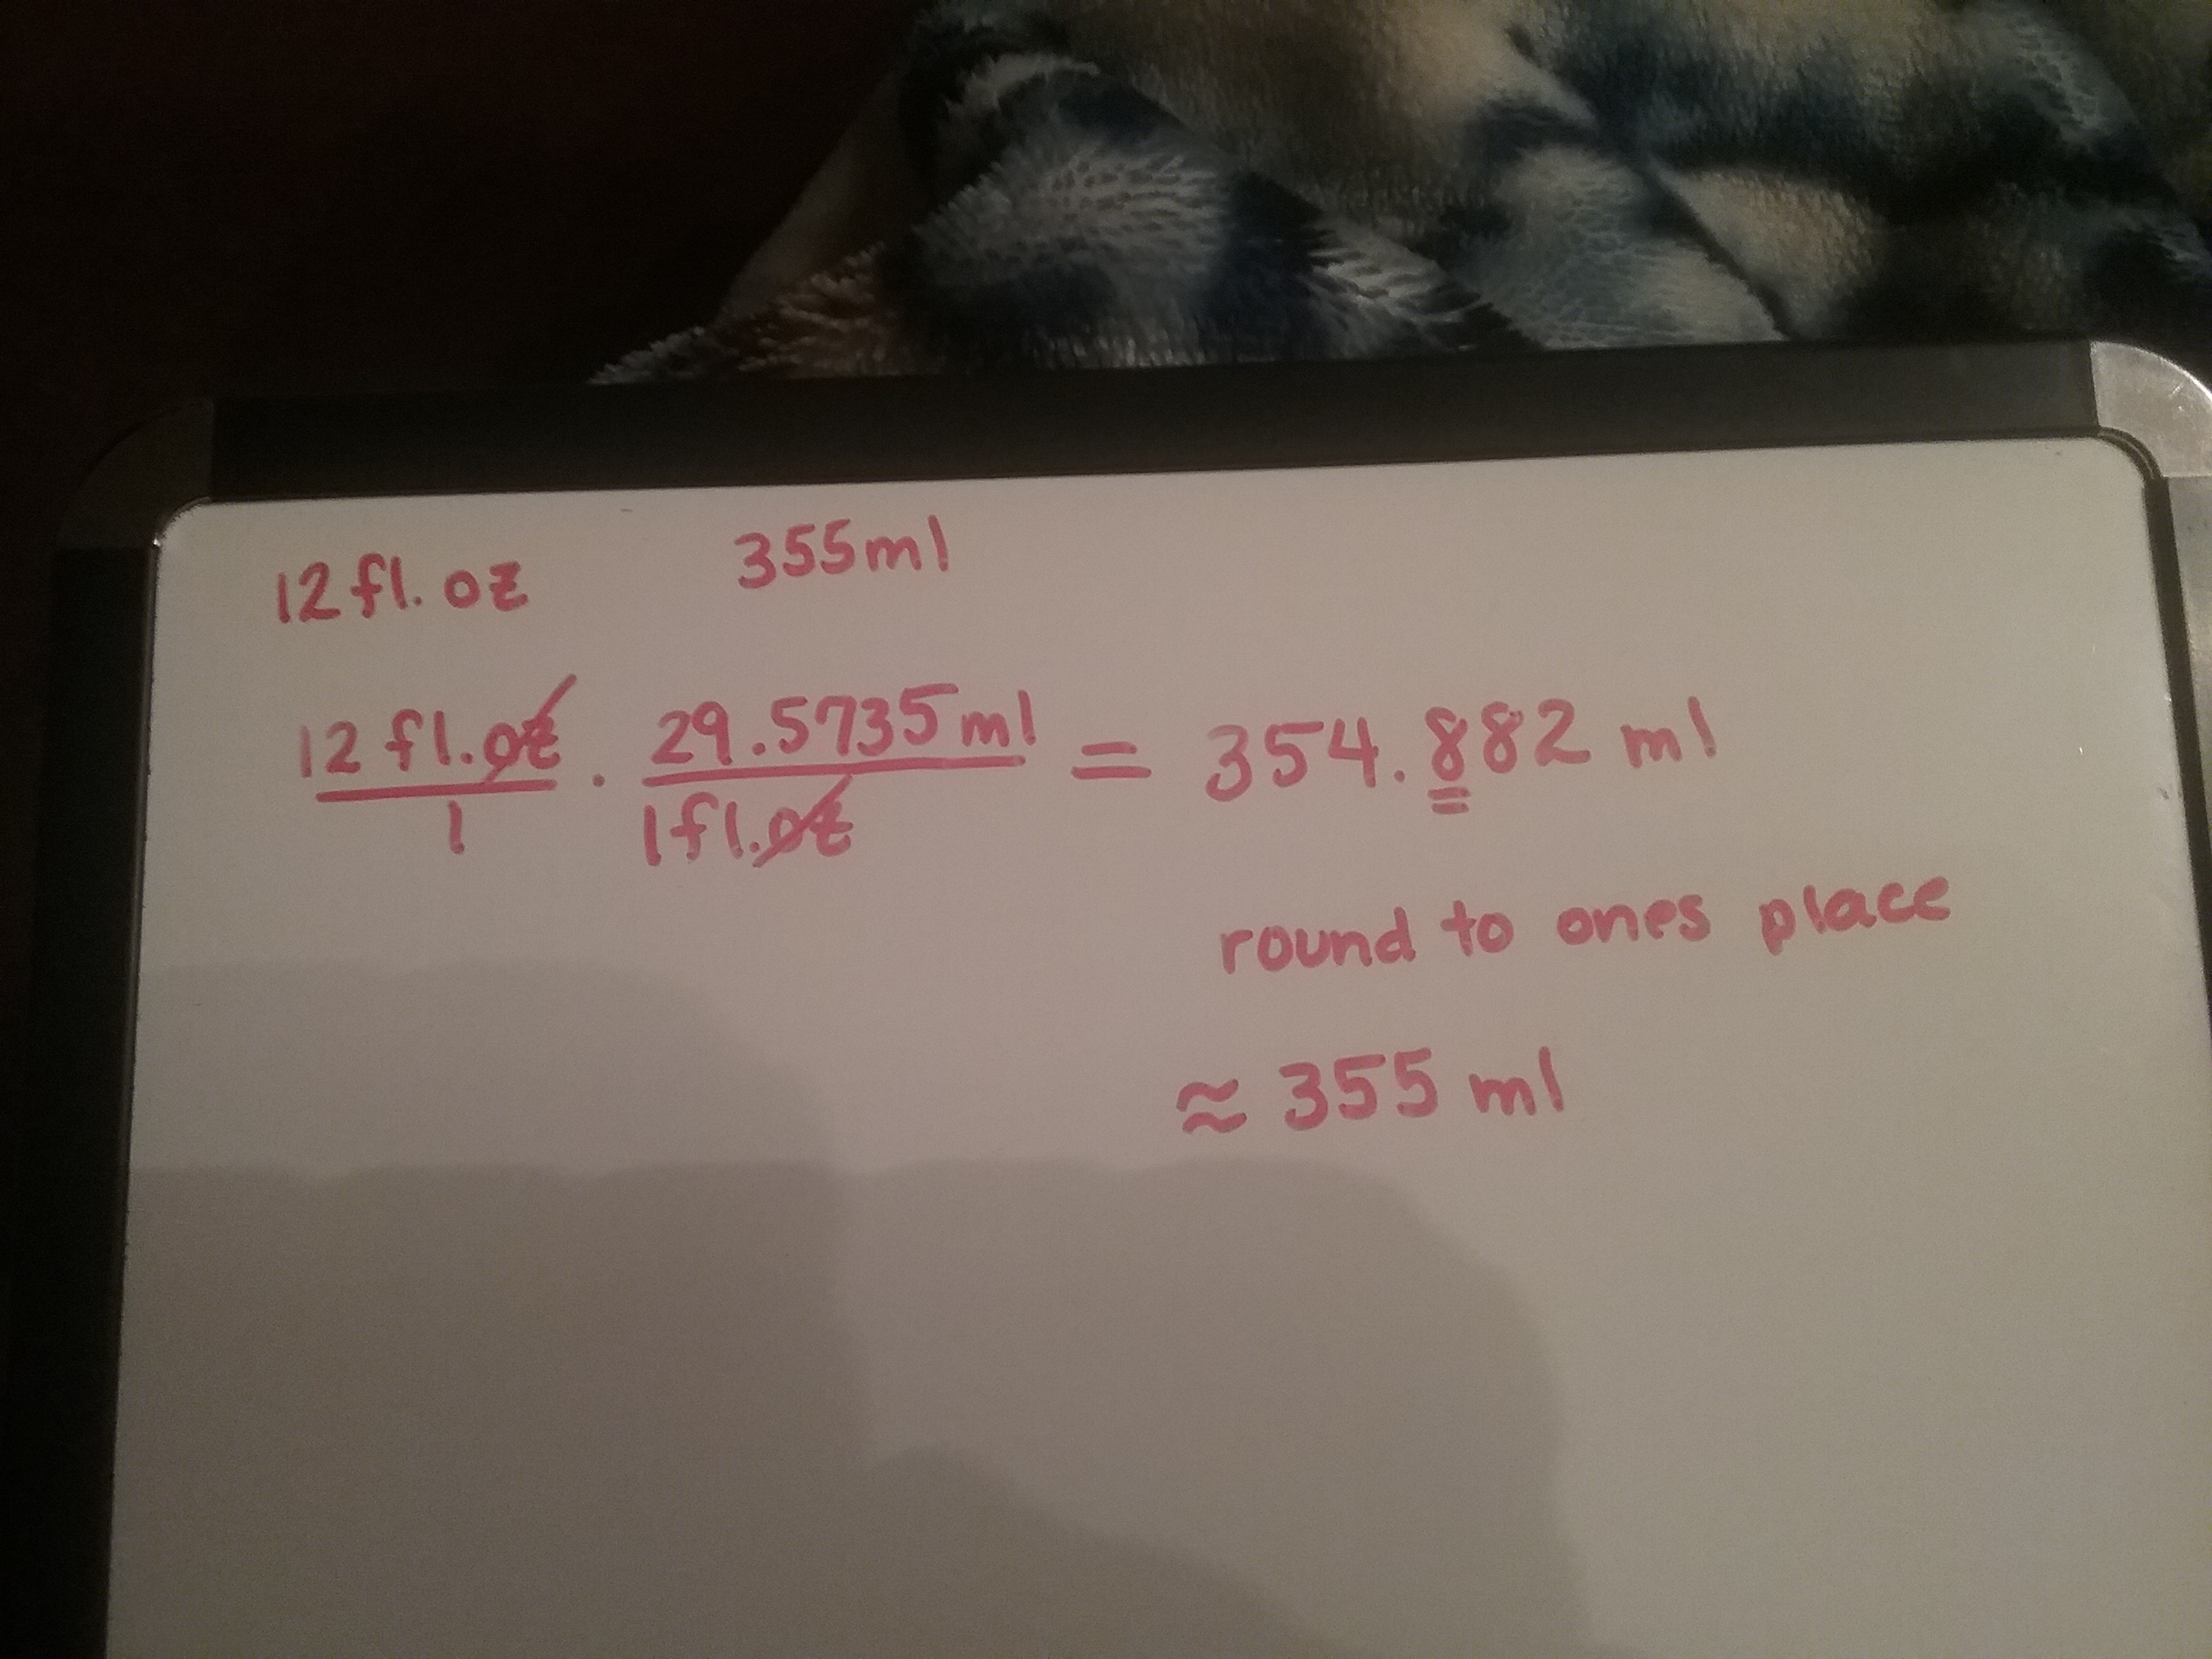 12 fl. oz 355ml
12 fl. oz / 1 · 29.5735 ml / 1 fl. oz = 354.882 ml
round to ones place
≈ 355 ml